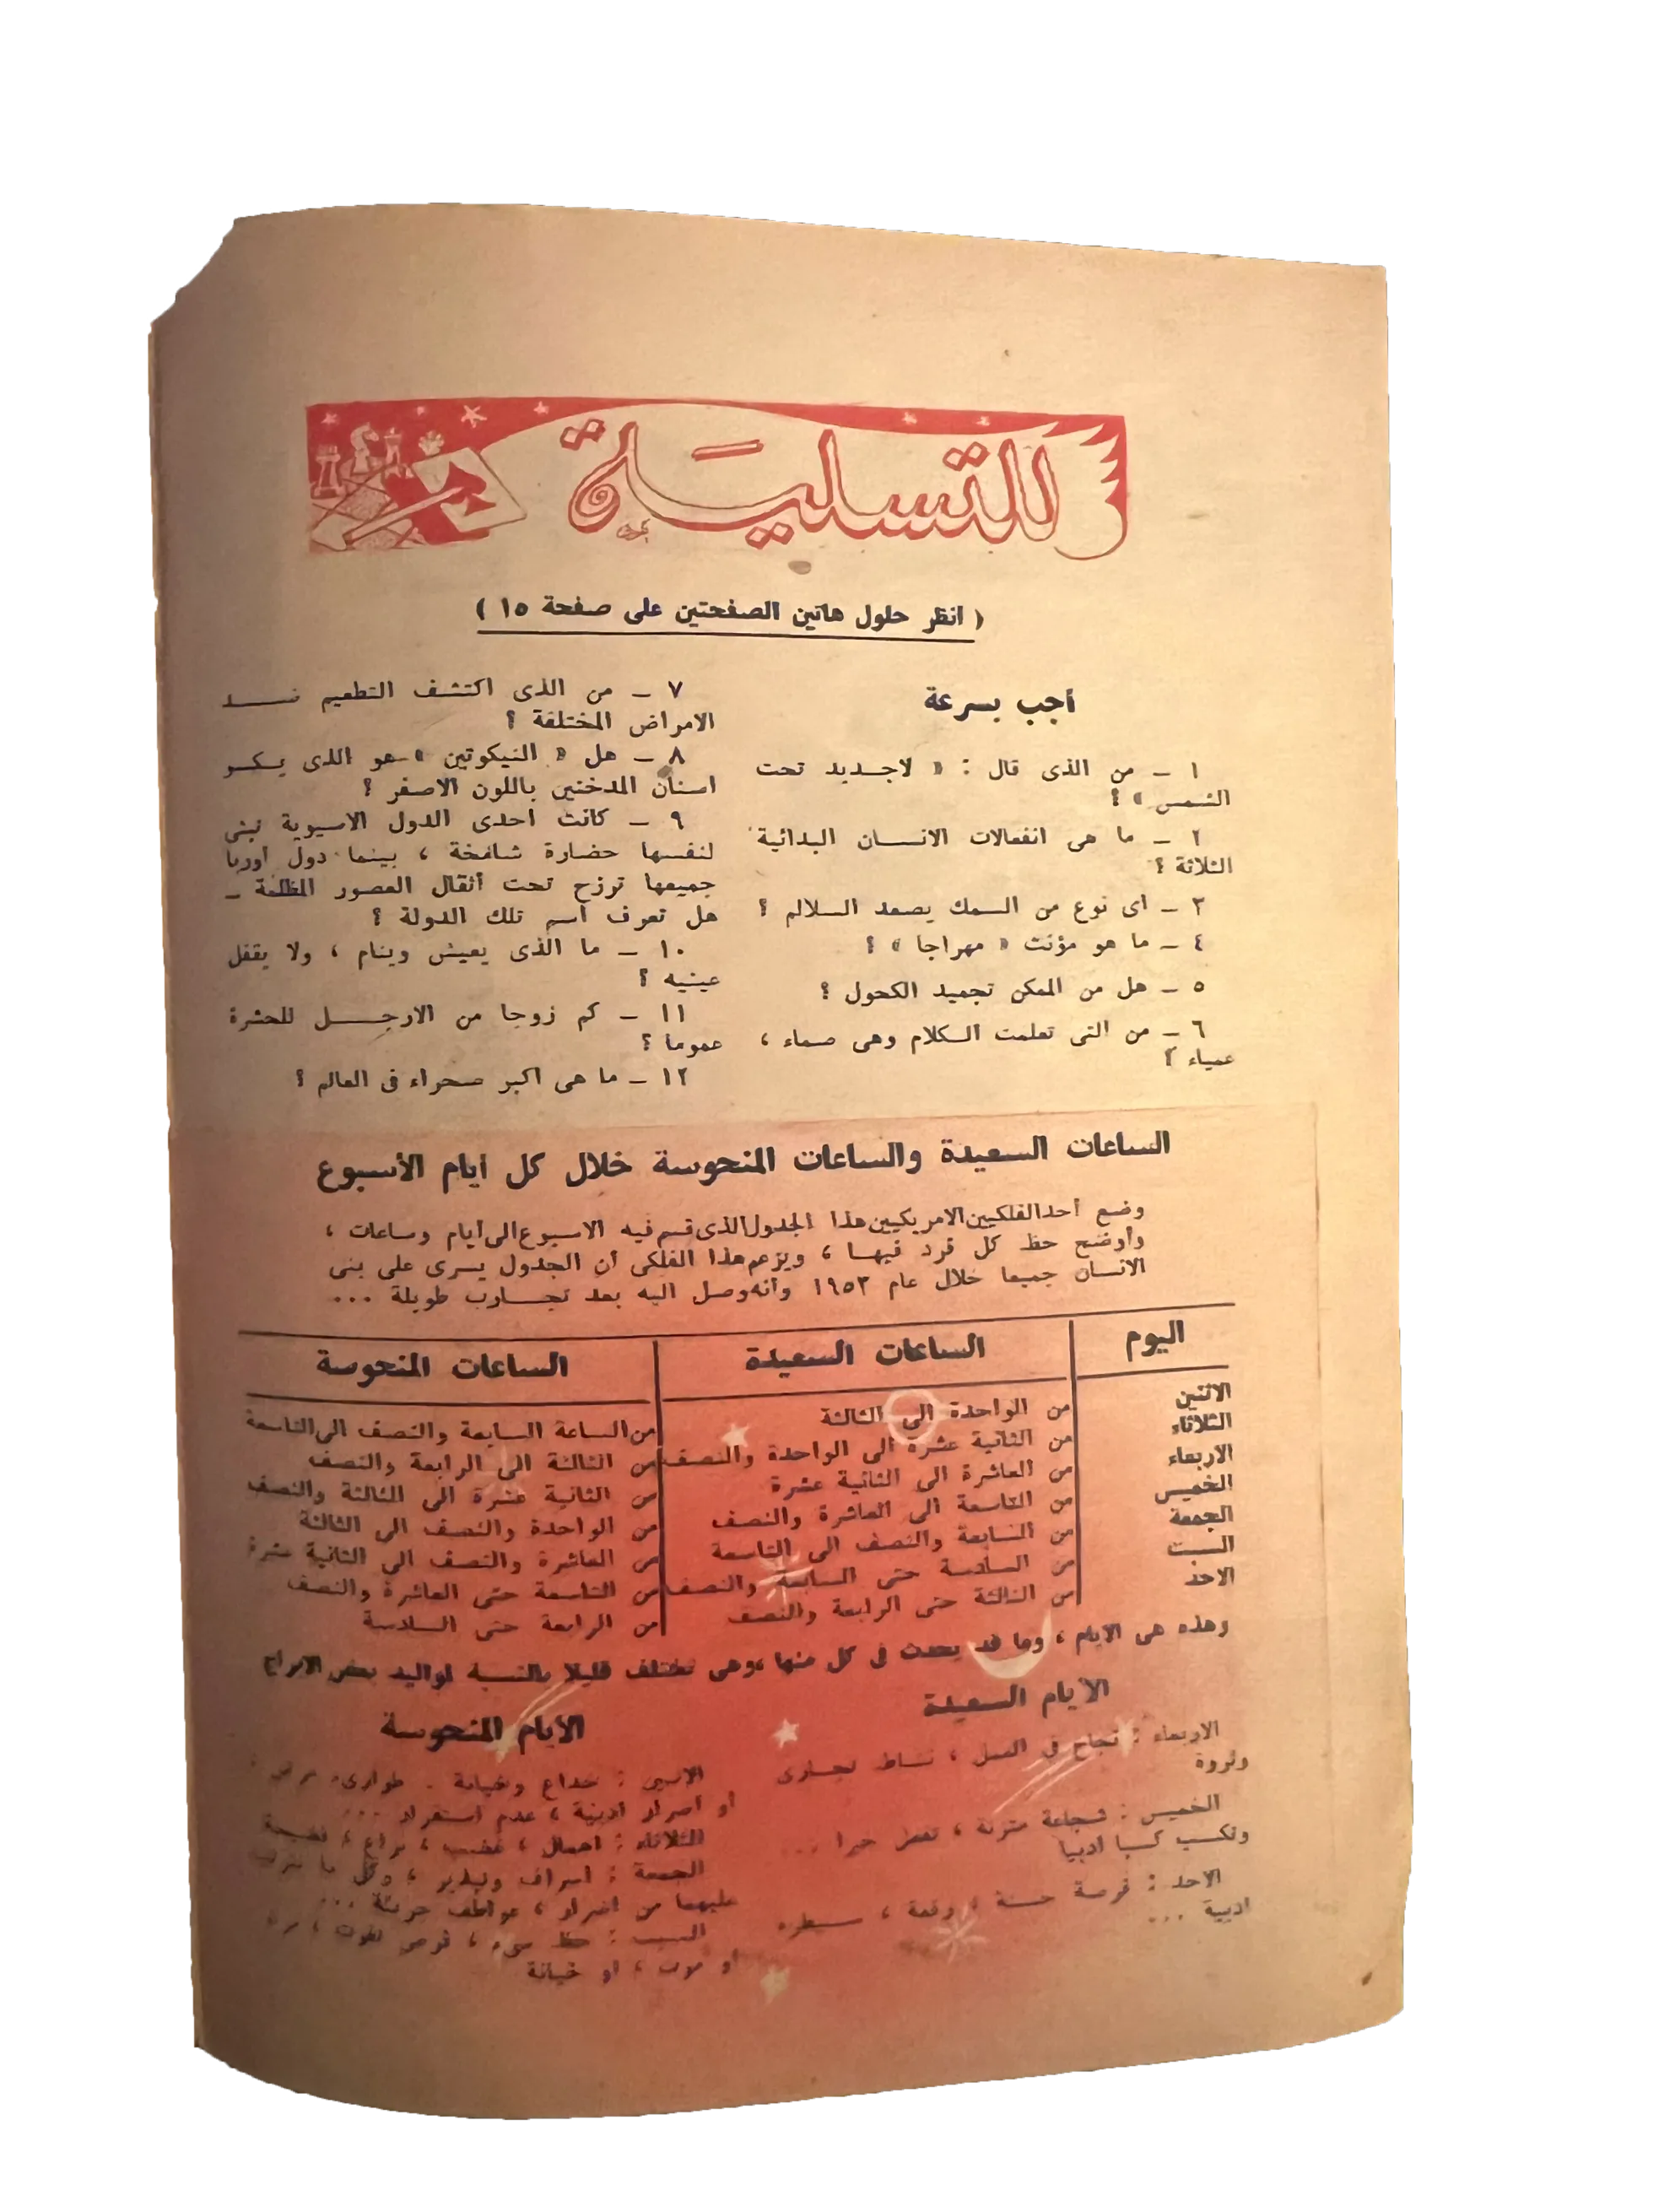 للتسلية
( انظر حلول هاتين الصفحتين على صفحة ١٥ )
أجب بسرعة
١ ـ من الذى قال : « لاجديد تحت
الشمس » ؟
٢ ـ ما هى انفعالات الانسان البدائية
الثلاثة ؟
٣ ـ اى نوع من السمك يصعد السلالم ؟
٤ ـ ما هو مؤنث « مهراجا » ؟
٥ ـ هل من الممكن تجميد الكحول ؟
٦ ـ من التى تعلمت الكلام وهى صماء ،
عمياء ؟
٧ ـ من الذى اكتشف التطعيم ضد
الامراض المختلفة ؟
٨ ـ هل « النيكوتين » هو الذى يكسو
اسنان المدخنين باللون الاصفر ؟
٩ ـ كانت احدى الدول الاسيوية تبنى
لنفسها حضارة شامخة ، بينما دول اوربا
جميعها ترزح تحت أثقال العصور المظلمة ـ
هل تعرف اسم تلك الدولة ؟
١٠ ـ ما الذى يعيش وينام ، ولا يقفل
عينيه ؟
١١ ـ كم زوجا من الارجل للحشرة
عموما ؟
١٢ ـ ما هى اكبر صحراء فى العالم ؟
الساعات السعيدة والساعات المنحوسة خلال كل أيام الأسبوع
وضع أحد الفلكيين الامريكيين هذا الجدول الذى قسم فيه الاسبوع الى أيام وساعات ،
وأوضح حظ كل فرد فيها ، ويزعم هذا الفلكى أن الجدول يسرى على بنى
الانسان جميعا خلال عام ١٩٥٣ وأنه وصل اليه بعد تجارب طويلة ...
اليوم الساعات السعيدة الساعات المنحوسة
الاثنين من الواحدة الى الثالثة من الساعة السابعة والنصف الى التاسعة
الثلاثاء من الثانية عشرة الى الواحدة والنصف من الثالثة الى الرابعة والنصف
الاربعاء من العاشرة الى الثانية عشرة من الثانية عشرة الى الثالثة والنصف
الخميس من التاسعة الى العاشرة والنصف من الواحدة والنصف الى الثالثة
الجمعة من السابعة والنصف الى التاسعة من العاشرة والنصف الى الثانية عشرة
السبت من السادسة حتى السابعة والنصف من التاسعة حتى العاشرة والنصف
الاحد من الثالثة حتى الرابعة والنصف من الرابعة حتى السادسة
وهذه هى الايام ، وما قد يحدث فى كل منها ، وهى تختلف قليلا بالنسبة لمواليد بعض الابراج
الأيام السعيدة
الاربعاء : نجاح فى العمل ، نشاط تجارى
وثروة
الخميس : شجاعة متزنة ، تفعل خيرا ...
وتكسب كسبا ادبيا
الاحد : فرصة حسنة ، رفعة ، سيطرة
ادبية ...
الأيام المنحوسة
الاثنين : خداع وخيانة . طوارىء مرض ،
أو أضرار ادبية ، عدم استقرار ...
الثلاثاء : اهمال ، غضب ، نزاع ، فضيحة
الجمعة : اسراف وتبذير ، وكل ما يترتب
عليهما من اضرار ، عواطف حزينة ...
السبت : حظ سىء ، فرص تفوت ،
او موت ، او خيانة